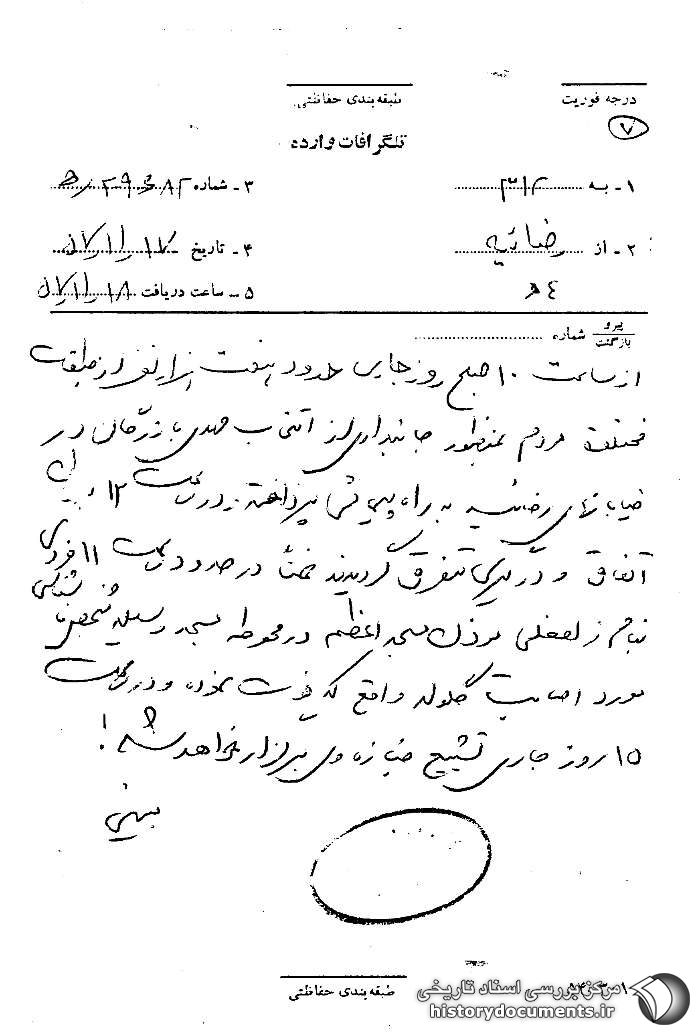 درجه فوریت
طبقه‌بندی حفاظتی
۷
تلگرافات وارده
۱ - به ۳۱۲
۳ - شماره
۲ - از رضائیه
۴ - تاریخ ۵۷/۱۱/۱۷
۵ - ساعت دریافت ۵۷/۱۱/۱۸
پیرو
بازگشت
شماره
از ساعت ۱۰ صبح روز جاری حدود هفت هزار نفر از طبقات
مختلف مردم بمنظور جانبداری از انتخاب مهدی بازرگان در
خیابانهای رضائیه به راه پیمائی پرداخته و در ساعت ۱۳ بدون
اتفاق و درگیری متفرق گردیدند ضمناً در حدود ساعت ۱۱ فردی
بنام زلفعلی موذن مسجد اعظم در محوطه مسجد وسیله شخص ناشناسی
مورد اصابت گلوله واقع که فوت نموده و در ساعت
۱۵ روز جاری تشییع جنازه وی برگزار خواهد شد!
طبقه‌بندی حفاظتی
مرکز بررسی اسناد تاریخی
historydocuments.ir